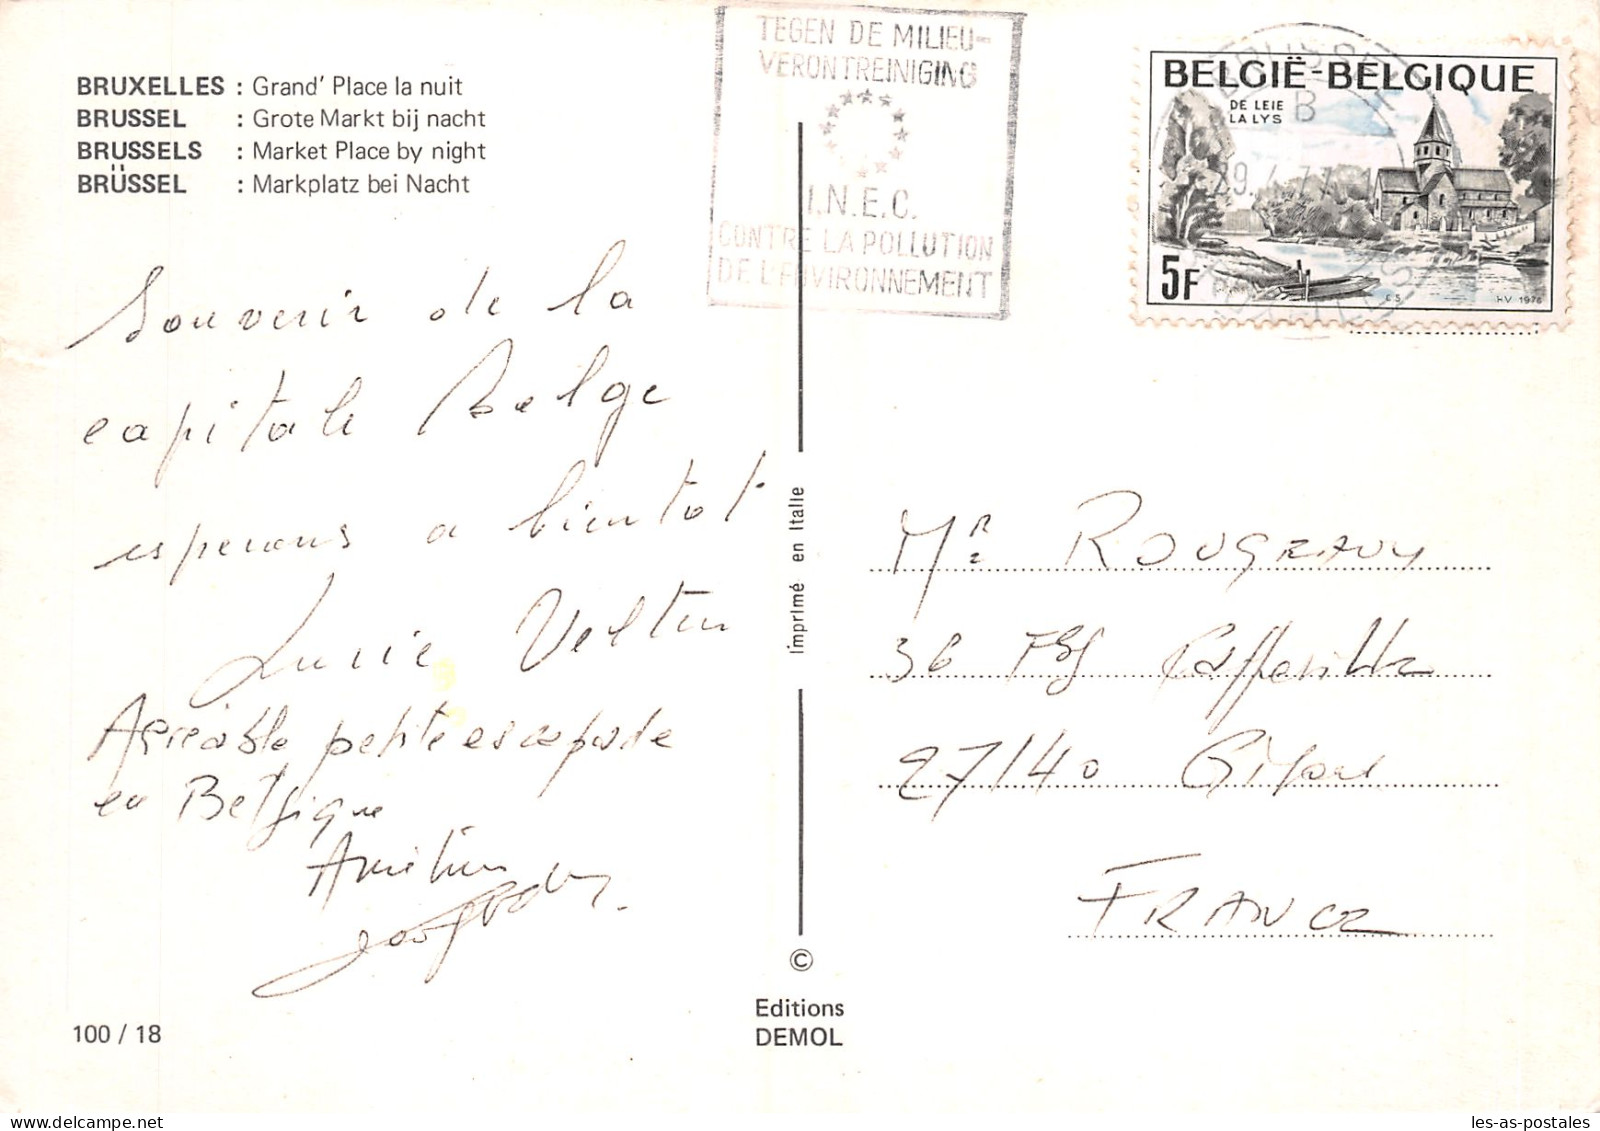 BRUXELLES : Grand' Place la nuit
BRUSSEL : Grote Markt bij nacht
BRUSSELS : Market Place by night
BRÜSSEL : Markplatz bei Nacht
TEGEN DE MILIEU-
VERONTREINIGING
I.N.E.C.
CONTRE LA POLLUTION
DE L'ENVIRONNEMENT
BELGIË-BELGIQUE
DE LEIE
LA LYS
B
29.4.77
5F
HV 1976
Souvenir de la
capitale Belge
esperons a bientot
Lucie Velten
Agréable petite escapade
en Belgique
100 / 18
Imprimé en Italie
©
Editions
DEMOL
Mr ROUGEAUX
36 Fbg
27140 Gisors
FRANCE
les-as-postales